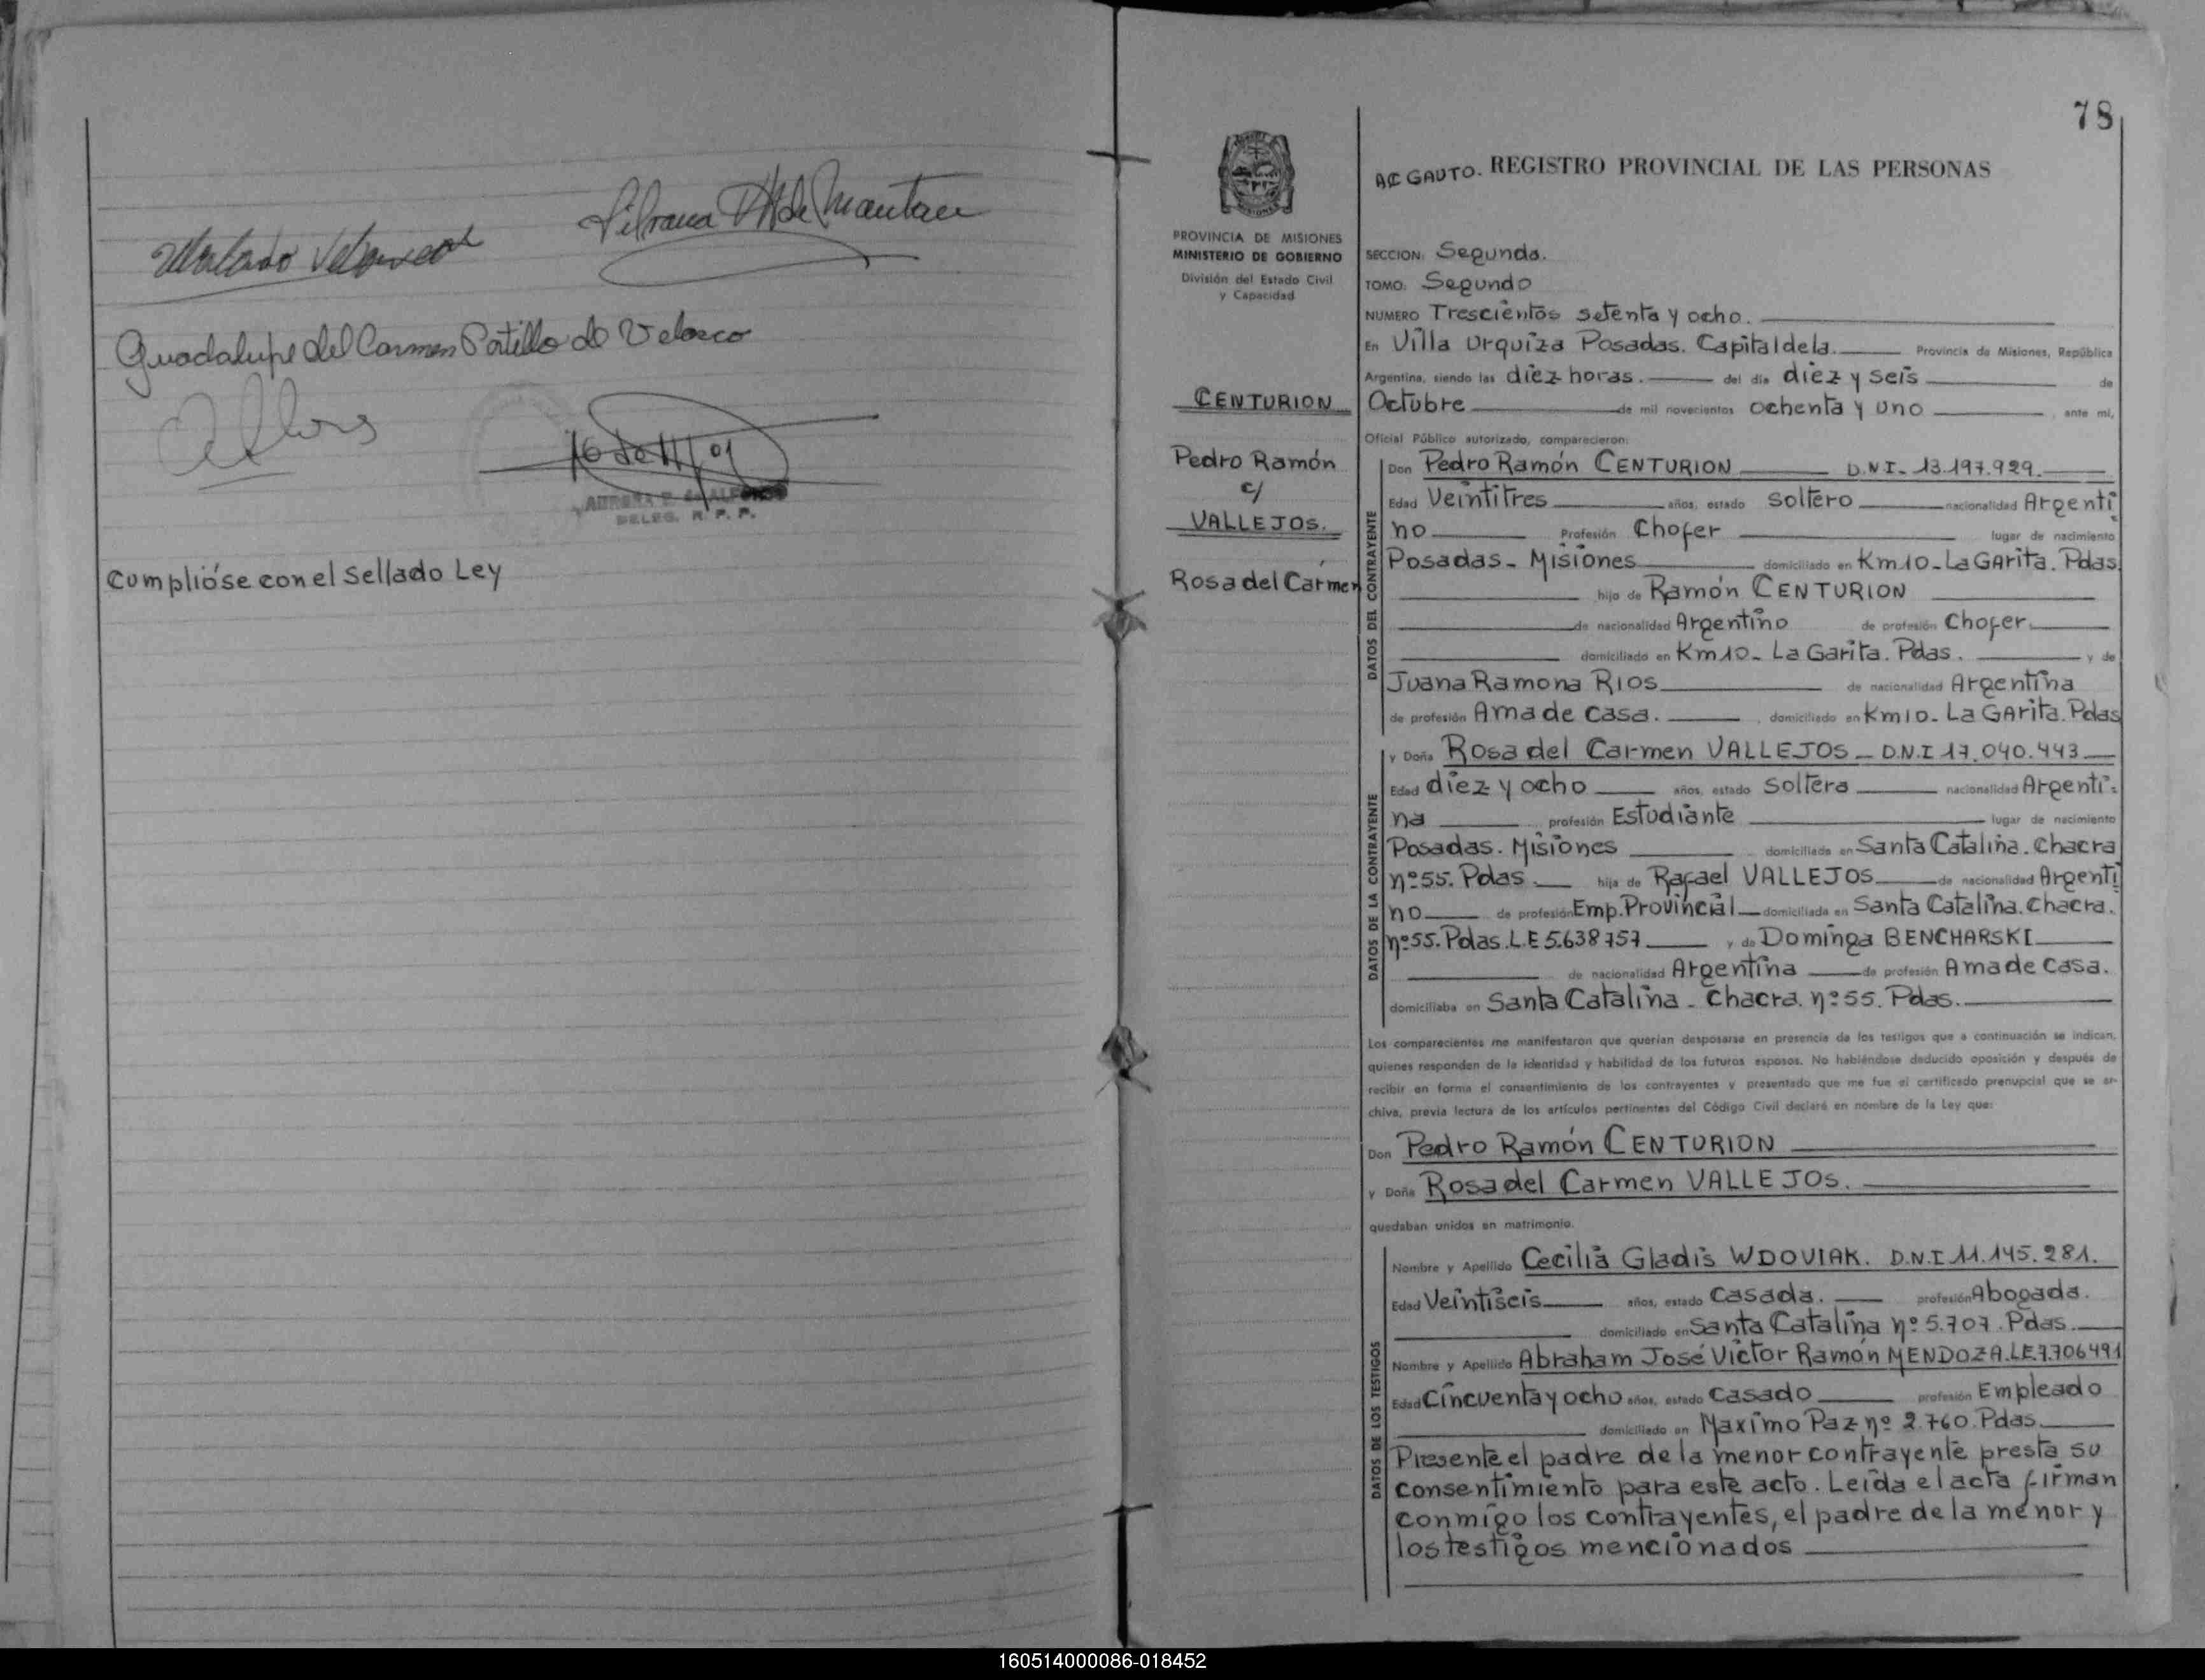 Silvana
Velasco
Guadalupe del Carmen Portillo de Velasco
DELEG. R. P. P.
Cumplióse con el Sellado Ley
78
PROVINCIA DE MISIONES
MINISTERIO DE GOBIERNO
División del Estado Civil
y Capacidad
CENTURION
Pedro Ramón
c/
VALLEJOS.
Rosa del Carmen
AC GAUTO. REGISTRO PROVINCIAL DE LAS PERSONAS
SECCION: Segunda.
TOMO: Segundo
NUMERO Trescientos setenta y ocho.
En Villa Urquiza Posadas. Capital de la. Provincia de Misiones, República
Argentina, siendo las diez horas. del día diez y seis de
Octubre de mil novecientos ochenta y uno, ante mí,
Oficial Público autorizado, comparecieron:
DATOS DEL CONTRAYENTE
Don Pedro Ramón CENTURION D.N.I. 13.197.929.
Edad Veintitres años, estado soltero nacionalidad Argenti
no Profesión Chofer lugar de nacimiento
Posadas - Misiones domiciliado en Km 10 - La GArita. Pdas.
hijo de Ramón CENTURION
de nacionalidad Argentino de profesión Chofer.
domiciliado en Km 10 - La Garita. Pdas. y de
Juana Ramona RIOS de nacionalidad Argentina
de profesión Ama de casa. domiciliado en Km 10 - La GArita. Pdas
DATOS DE LA CONTRAYENTE
y Doña Rosa del Carmen VALLEJOS - D.N.I 17.040.443
Edad diez y ocho años, estado soltera nacionalidad Argenti-
na profesión Estudiante lugar de nacimiento
Posadas. Misiones domiciliada en Santa Catalina. Chacra
nº 55. Pdas. hija de Rafael VALLEJOS de nacionalidad Argenti
no de profesión Emp. Provincial domiciliada en Santa Catalina. Chacra.
nº 55. Pdas. L.E 5.638757 y de Dominga BENCHARSKI
de nacionalidad Argentina de profesión Ama de casa.
domiciliaba en Santa Catalina - Chacra. nº 55. Pdas.
Los comparecientes me manifestaron que querían desposarse en presencia de los testigos que a continuación se indican,
quienes responden de la identidad y habilidad de los futuros esposos. No habiéndose deducido oposición y después de
recibir en forma el consentimiento de los contrayentes y presentado que me fue el certificado prenupcial que se ar-
chiva, previa lectura de los artículos pertinentes del Código Civil declaré en nombre de la Ley que:
Don Pedro Ramón CENTURION
y Doña Rosa del Carmen VALLEJOS.
quedaban unidos en matrimonio.
DATOS DE LOS TESTIGOS
Nombre y Apellido Cecilia Gladis WDOVIAK. D.N.I 11.145.281.
Edad Veintiseis años, estado Casada. profesión Abogada.
domiciliado en Santa Catalina nº 5.707. Pdas.
Nombre y Apellido Abraham José Victor Ramón MENDOZA. L.E.7.706491
Edad Cincuenta y ocho años, estado casado profesión Empleado
domiciliado en Maximo Paz nº 2.760. Pdas.
Presente el padre de la menor contrayente presta su
consentimiento para este acto. Leida el acta firman
conmigo los contrayentes, el padre de la menor y
los testigos mencionados
160514000086-018452